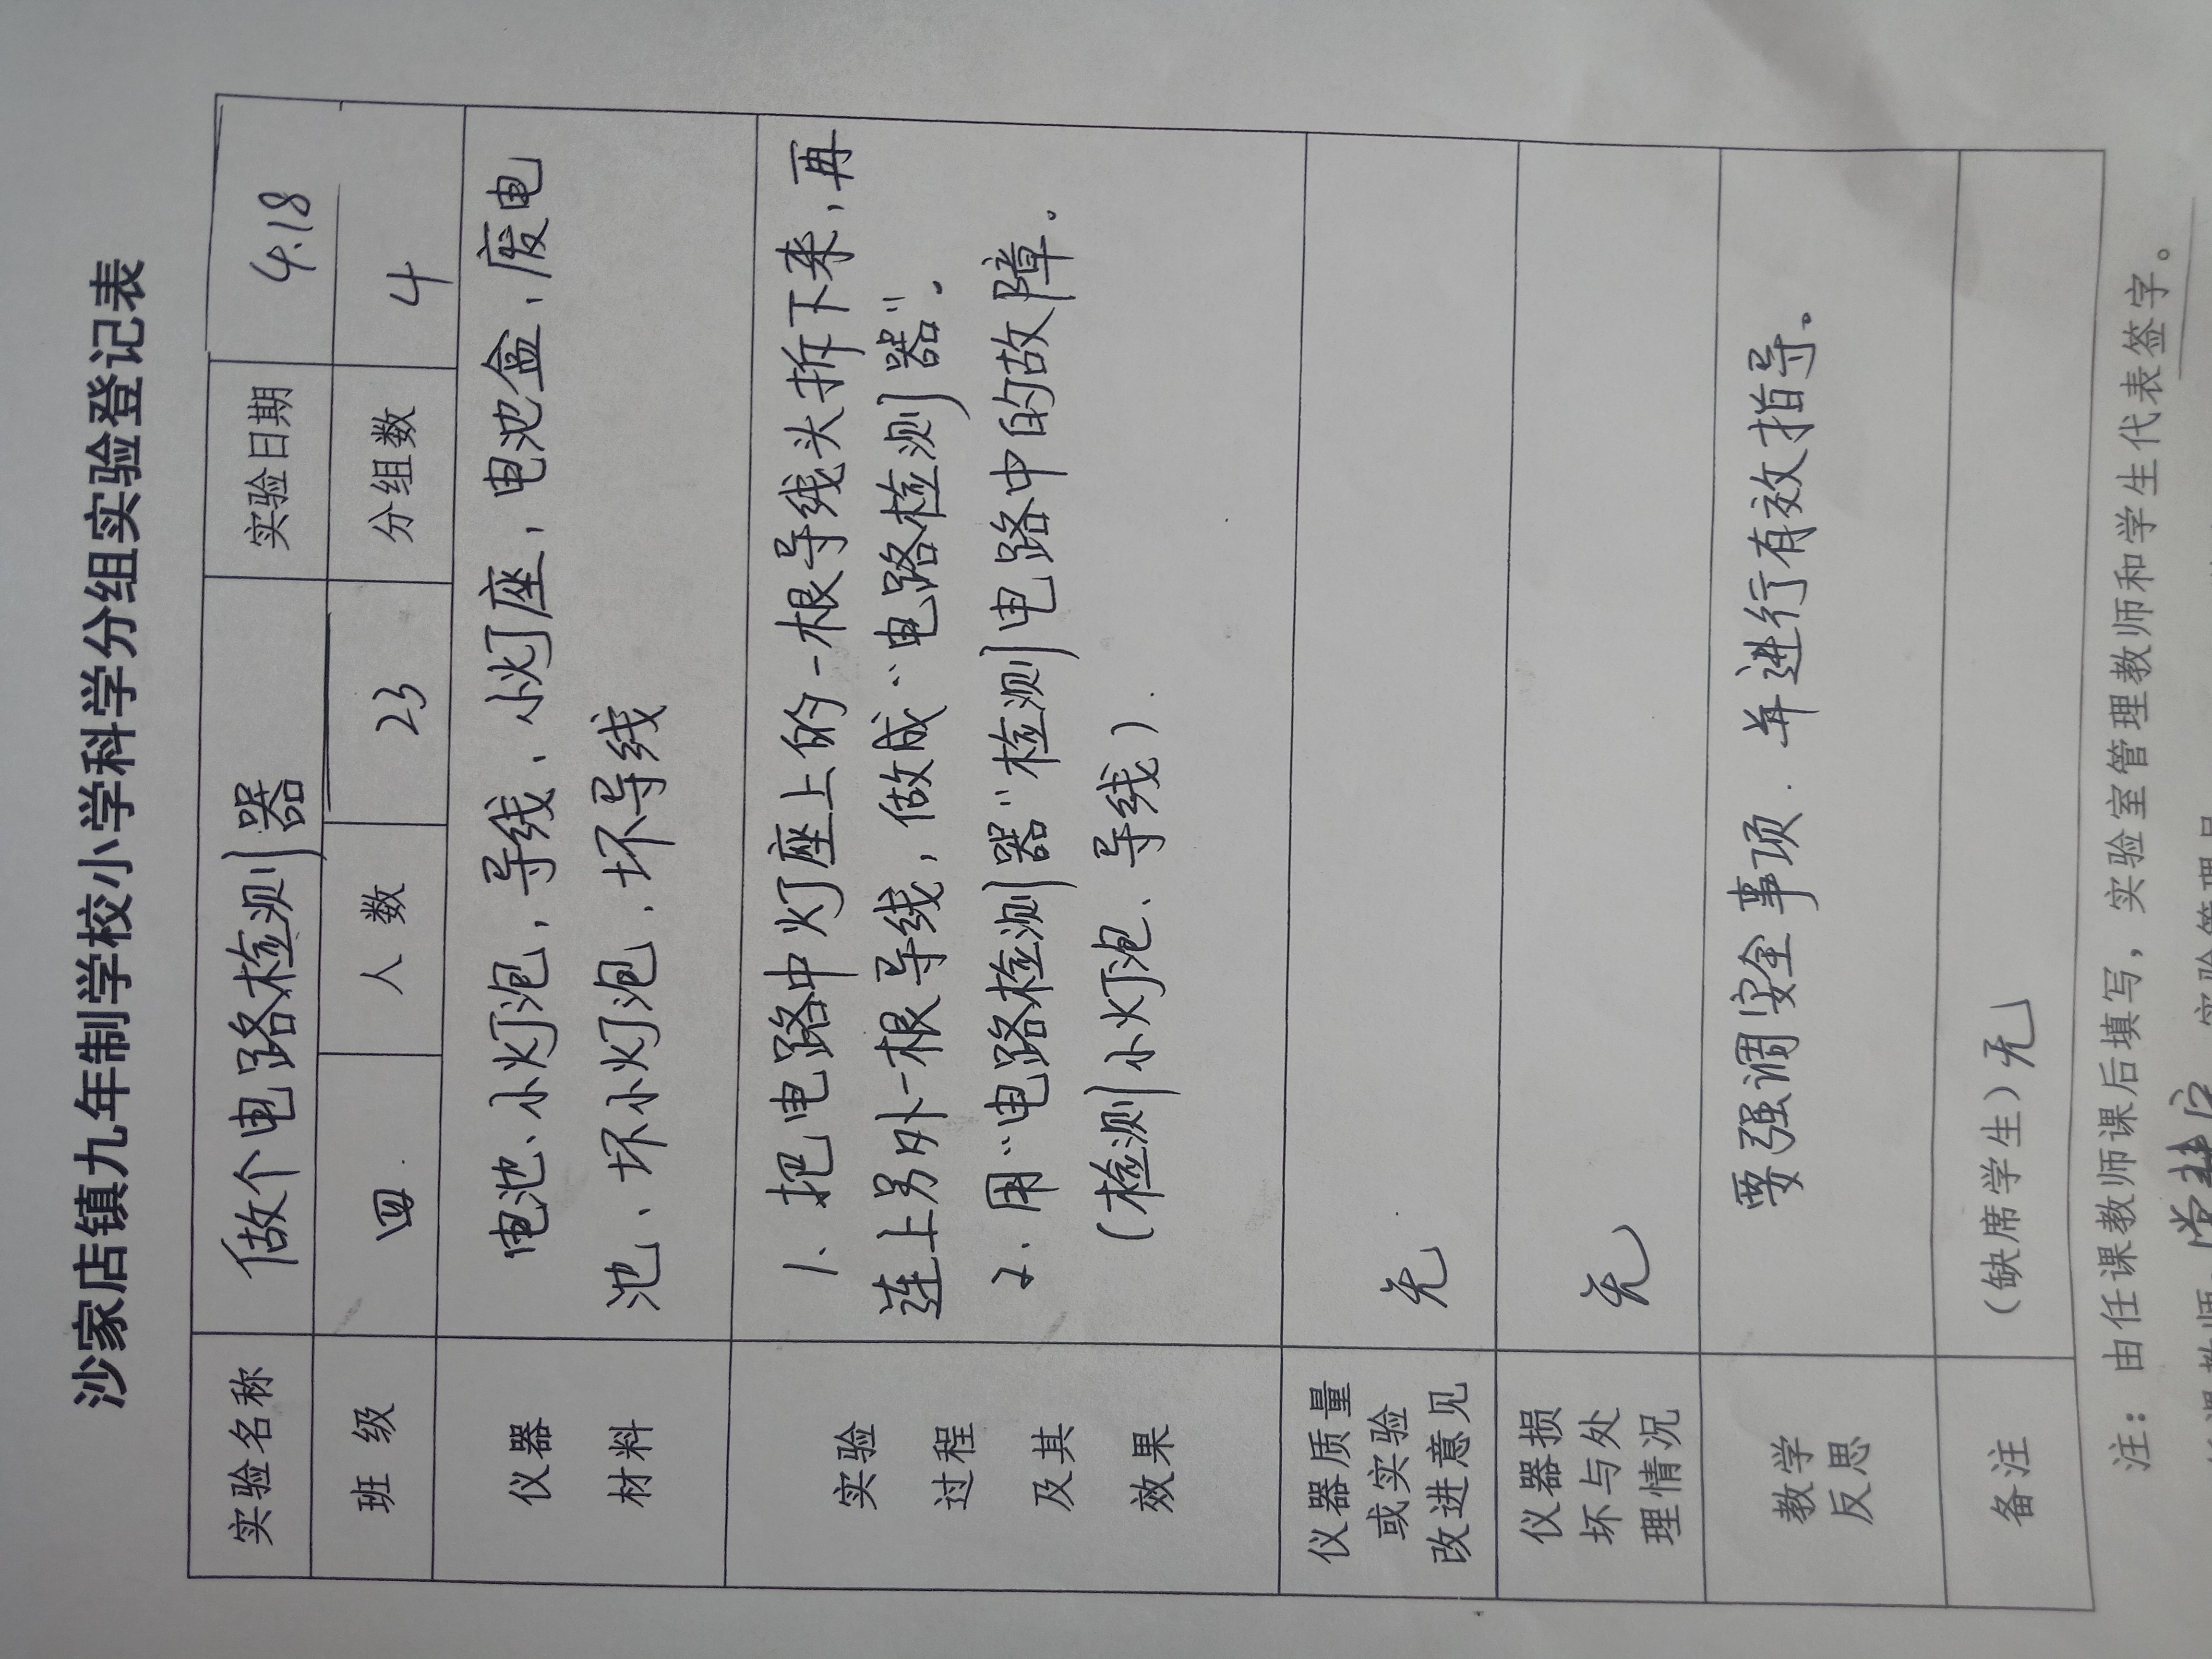 沙家店镇九年制学校小学科学分组实验登记表
实验名称 做个电路检测器 实验日期 4.18
班 级 四 人 数 23 分组数 4
仪器 电池、小灯泡，导线、小灯座，电池盒、废电
材料 池、坏小灯泡、坏导线
实验 1、把电路中灯座上的一根导线头拆下来，再
过程 连上另外一根导线，做成“电路检测器”。
及其 2. 用“电路检测器”检测电路中的故障.
效果 (检测小灯泡、导线).
仪器质量
或实验 无
改进意见
仪器损
坏与处 无
理情况
教学 要强调安全事项. 并进行有效指导。
反思
备注 (缺席学生) 无
注：由任课教师课后填写，实验室管理教师和学生代表签字。